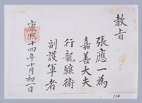 敎旨
張應一爲
嘉善大夫
行龍驤衛
副護軍者
康熙十四年十月初二日